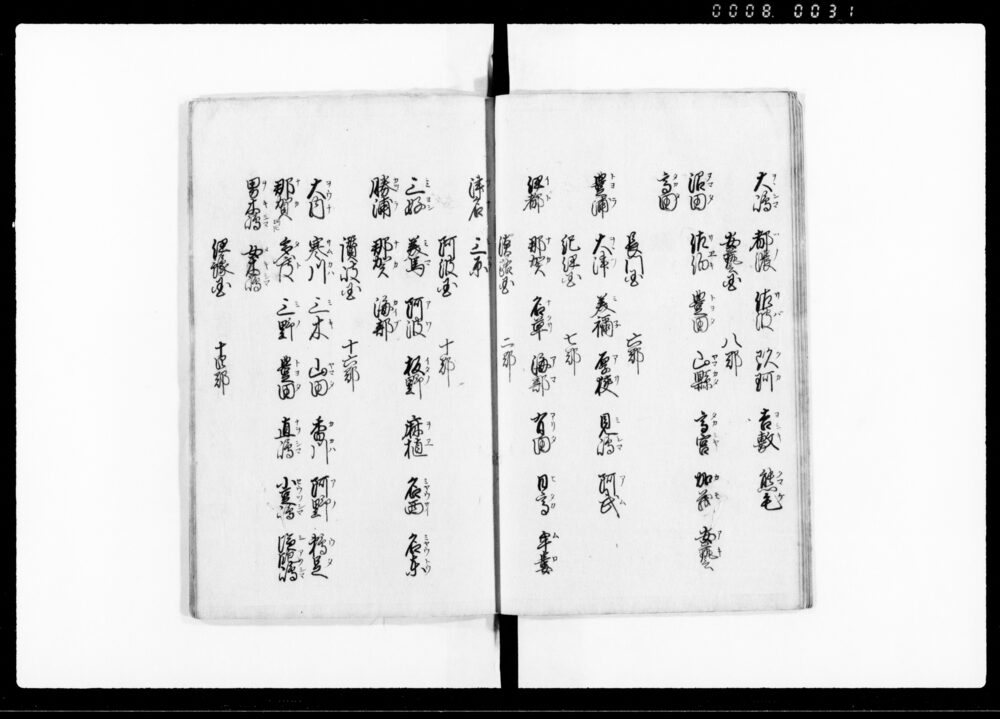 0008 0031
大嶋 都濃 佐波 玖珂 吉敷 熊毛
安藝国 八郡
沼田 佐伯 豊田 山縣 高宮 加茂 安藝
高田
長門国 六郡
豊浦 大津 美祢 厚狭 見嶋 阿武
紀伊国 七郡
伊都 那賀 名草 海部 有田 日高 牟婁
淡路国 二郡
津名 三原
阿波国 十郡
三好 美馬 阿波 板野 麻植 名西 名東
勝浦 那賀 海部
讃岐国 十六郡
大内 寒川 三木 山田 香川 阿野 鵜足
那賀 多度 三野 豊田 直嶋 小豆嶋 塩飽嶋
男木嶋 女木嶋
伊豫国 十四郡